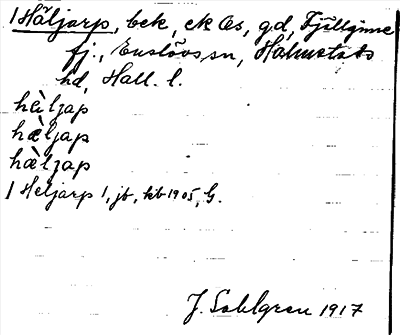 1 Häljarp, bek, ek Os, gd, Fjällginne
fj., Enslövs sn, Halmstads
hd, Hall. l.
hàljap
hæ̀ljap
hæ̀ljap
1 Heljarp 1, jb, kb 1905, G.
J. Sahlgren 1917